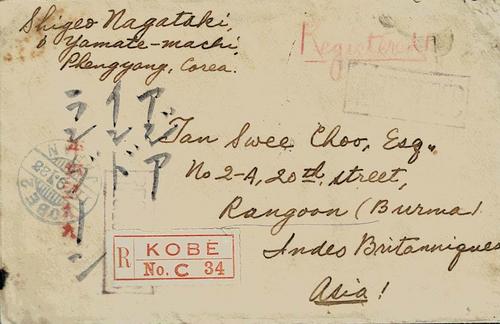 Shigeo Nagataki,
6 Yamate-machi,
Phengyang, Corea.
Registered
アジア
インド
ラングーン
Tan Swee Choo, Esq.,
No 2-A, 20th, street,
Rangoon (Burma)
Indes Britanniques
Asia!
KOBE
R
KOBE
No. C 34